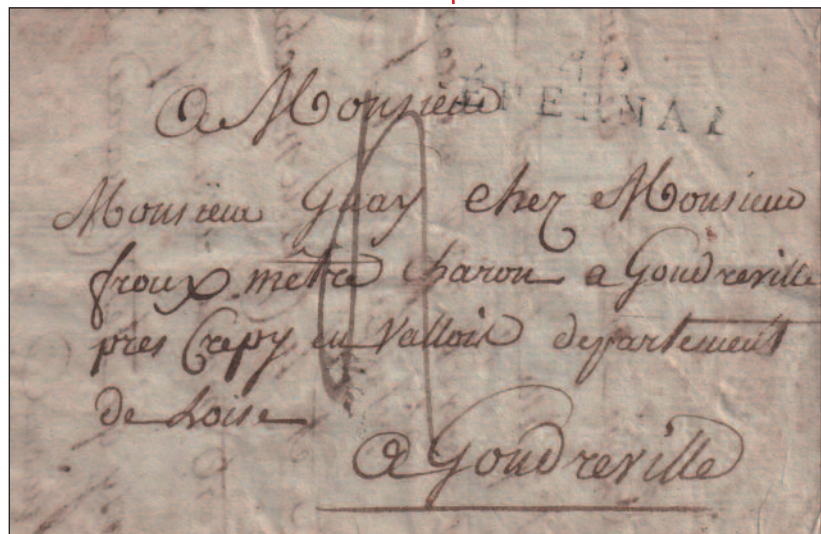 ÉPERNAY
A Monsieur
Monsieur Guay chez Monsieur
froux metre charon a Gondreville
pres Crepy en Vallois departement
de Loise
a Gondreville